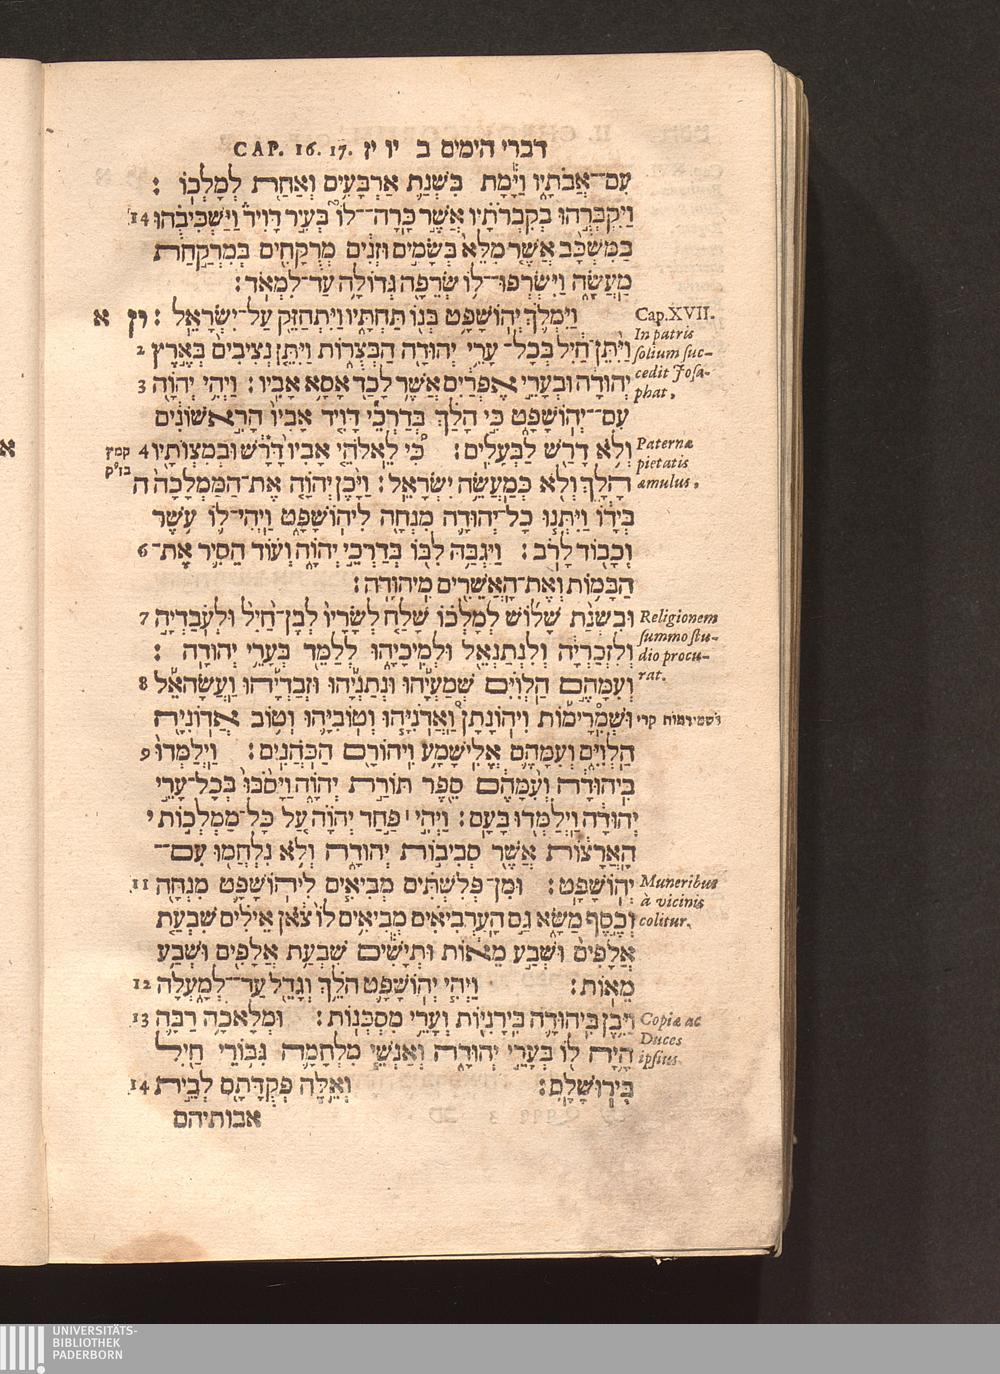 דברי הימים ב יו יז CAP. 16. 17.
עִם־אֲבֹתָיו וַיָּמָת בִּשְׁנַת אַרְבָּעִים וְאַחַת לְמָלְכוֹ :
וַיִּקְבְּרֻהוּ בְקִבְרֹתָיו אֲשֶׁר כָּרָה־לוֹ בְּעִיר דָּוִיד וַיַּשְׁכִּיבֻהוּ 14.
בַּמִּשְׁכָּב אֲשֶׁר מִלֵּא בְּשָׂמִים וּזְנִים מְרֻקָּחִים בְּמִרְקַחַת
מַעֲשֶׂה וַיִּשְׂרְפוּ־לוֹ שְׂרֵפָה גְּדוֹלָה עַד־לִמְאֹד :
וַיִּמְלֹךְ יְהוֹשָׁפָט בְּנוֹ תַּחְתָּיו וַיִּתְחַזֵּק עַל־יִשְׂרָאֵל : יז א
Cap. XVII.
וַיִּתֶּן־חַיִל בְּכָל־עָרֵי יְהוּדָה הַבְּצֻרוֹת וַיִּתֵּן נְצִיבִים בְּאֶרֶץ 2
In patris
solium suc-
יְהוּדָה וּבְעָרֵי אֶפְרַיִם אֲשֶׁר לָכַד אָסָא אָבִיו : וַיְהִי יְהוָה 3
cedit Josa-
phat.
עִם־יְהוֹשָׁפָט כִּי הָלַךְ בְּדַרְכֵי דָּוִיד אָבִיו הָרִאשֹׁנִים
וְלֹא דָרַשׁ לַבְּעָלִים : כִּי לֵאלֹהֵי אָבִיו דָּרָשׁ וּבְמִצְוֹתָיו 4
קמץ
בז״ק
Paternæ
pietatis
הָלָךְ וְלֹא כְּמַעֲשֵׂה יִשְׂרָאֵל : וַיָּכֶן יְהוָה אֶת־הַמַּמְלָכָה ה
æmulus,
בְּיָדוֹ וַיִּתְּנוּ כָל־יְהוּדָה מִנְחָה לִיהוֹשָׁפָט וַיְהִי־לוֹ עֹשֶׁר
וְכָבוֹד לָרֹב : וַיִּגְבַּהּ לִבּוֹ בְּדַרְכֵי יְהוָה וְעוֹד הֵסִיר אֶת־ 6
הַבָּמוֹת וְאֶת־הָאֲשֵׁרִים מִיהוּדָה :
וּבִשְׁנַת שָׁלוֹשׁ לְמָלְכוֹ שָׁלַח לְשָׂרָיו לְבֶן־חַיִל וּלְעֹבַדְיָה 7
Religionem
summo stu-
וְלִזְכַרְיָה וְלִנְתַנְאֵל וּלְמִיכָיָהוּ לְלַמֵּד בְּעָרֵי יְהוּדָה :
dio procu-
rat.
וְעִמָּהֶם הַלְוִיִּם שְׁמַעְיָהוּ וּנְתַנְיָהוּ וּזְבַדְיָהוּ וַעֲשָׂהאֵל 8
וּשְׁמִרָימוֹת וִיהוֹנָתָן וַאֲדֹנִיָּהוּ וְטוֹבִיָּהוּ וְטוֹב אֲדוֹנִיָּה
ושמירמות קרי
הַלְוִיִּם וְעִמָּהֶם אֱלִישָׁמָע וִיהוֹרָם הַכֹּהֲנִים : וַיְלַמְּדוּ 9
בִּיהוּדָה וְעִמָּהֶם סֵפֶר תּוֹרַת יְהוָה וַיָּסֹבּוּ בְּכָל־עָרֵי
יְהוּדָה וַיְלַמְּדוּ בָּעָם : וַיְהִי ׀ פַּחַד יְהוָה עַל כָּל־מַמְלְכוֹת י
הָאֲרָצוֹת אֲשֶׁר סְבִיבוֹת יְהוּדָה וְלֹא נִלְחֲמוּ עִם־
יְהוֹשָׁפָט : וּמִן־פְּלִשְׁתִּים מְבִיאִים לִיהוֹשָׁפָט מִנְחָה 11.
Muneribus
à vicinis
וְכֶסֶף מַשָּׂא גַּם הָעַרְבִיאִים מְבִיאִים לוֹ צֹאן אֵילִים שִׁבְעַת
colitur.
אֲלָפִים וּשְׁבַע מֵאוֹת וּתְיָשִׁים שִׁבְעַת אֲלָפִים וּשְׁבַע
מֵאוֹת : וַיְהִי יְהוֹשָׁפָט הֹלֵךְ וְגָדֵל עַד־לְמָעְלָה 12
וַיִּבֶן בִּיהוּדָה בִּירָנִיּוֹת וְעָרֵי מִסְכְּנוֹת : וּמְלָאכָה רַבָּה 13.
Copiæ ac
Duces
הָיָה לוֹ בְּעָרֵי יְהוּדָה וְאַנְשֵׁי מִלְחָמָה גִּבּוֹרֵי חַיִל
ipsius.
בִּירוּשָׁלָ͏ִם : וְאֵלֶּה פְקֻדָּתָם לְבֵית 14.
אבותיהם
א
UNIVERSITÄTS-
BIBLIOTHEK
PADERBORN